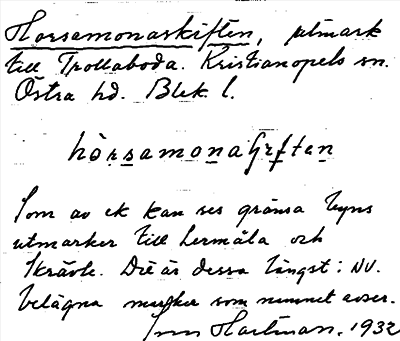 Horsamonaskiften, utmark
till Trollaboda. Kristianopels sn.
Östra hd. Blek. l.
hòrsamona
Som av ek kan ses gränsa byns
utmarker till Lermåla och
Skrävle. Det är dessa längst i NV.
belägna marker som namnet avser.
Hartman. 1932